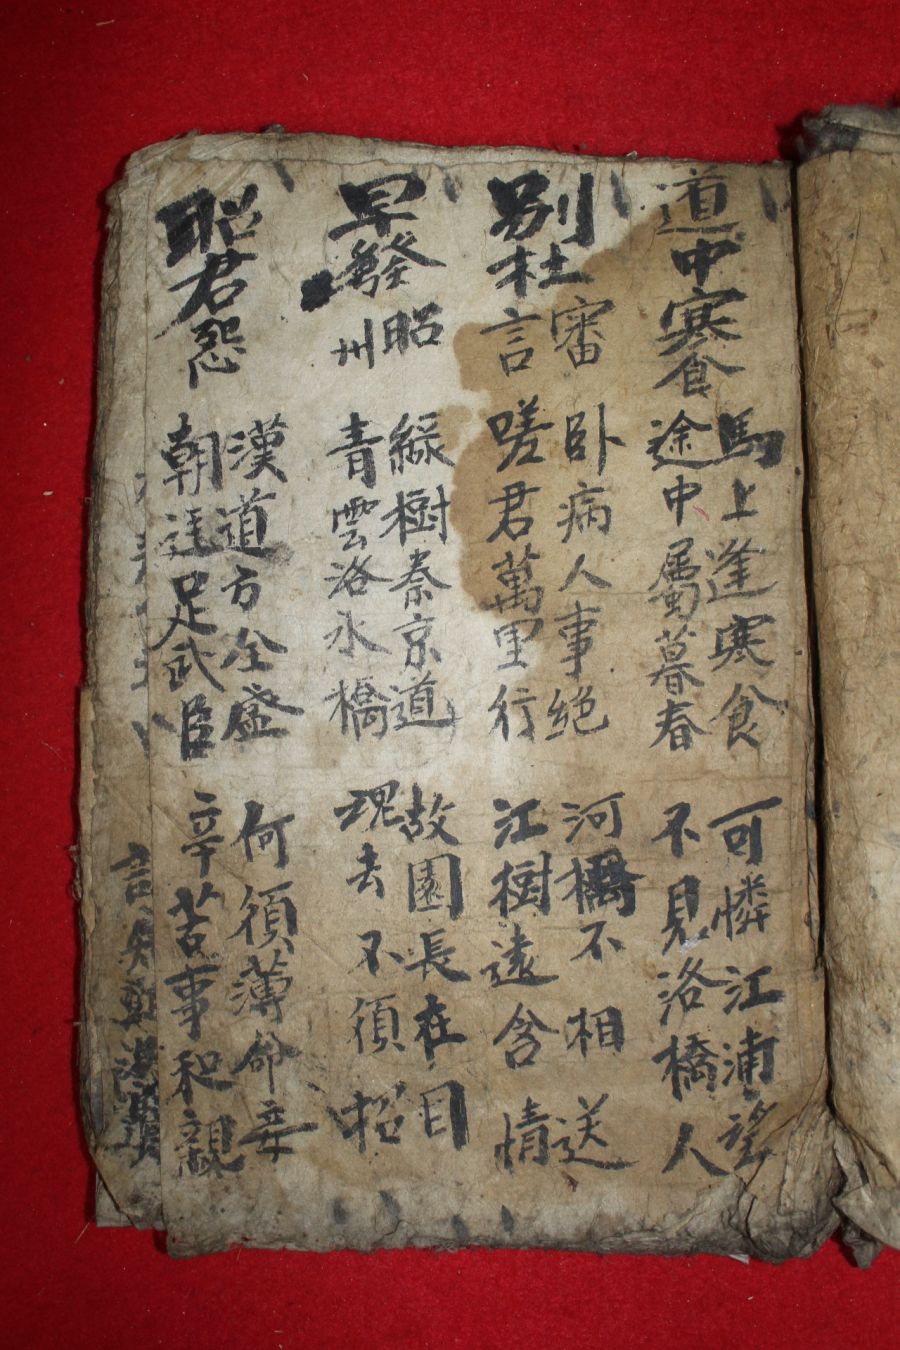 道中寒食
馬上逢寒食 可憐江浦望
途中屬暮春 不見洛橋人
別杜審言
卧病人事絶 河橋不相送
嗟君萬里行 江樹遠含情
早發昭州
綠樹秦京道 故園長在目
青雲洛水橋 魂去不湏招
昭君怨
漢道方全盛 何湏薄命妾
朝廷足武臣 辛苦事和親